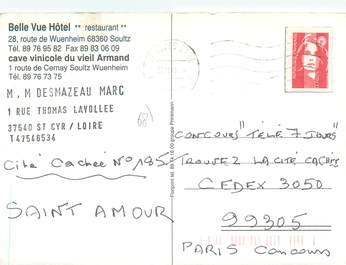 Belle Vue Hôtel " restaurant "
28, route de Wuenheim 68360 Soultz
Tél. 89 76 95 82 Fax 89 83 06 09
cave vinicole du vieil Armand
1 route de Cernay Soultz Wuenheim
Tél. 89 76 73 75
M, M DESMAZEAU MARC
1 RUE THOMAS LAVOLLEE
37540 ST CYR / LOIRE
T47546534
68
Cité Cachée N° 185
SAINT AMOUR
CONCOURS "TÉLÉ 7 JOURS"
TROUVEZ LA CITÉ CACHÉE
CEDEX 3050
99305
PARIS CONCOURS